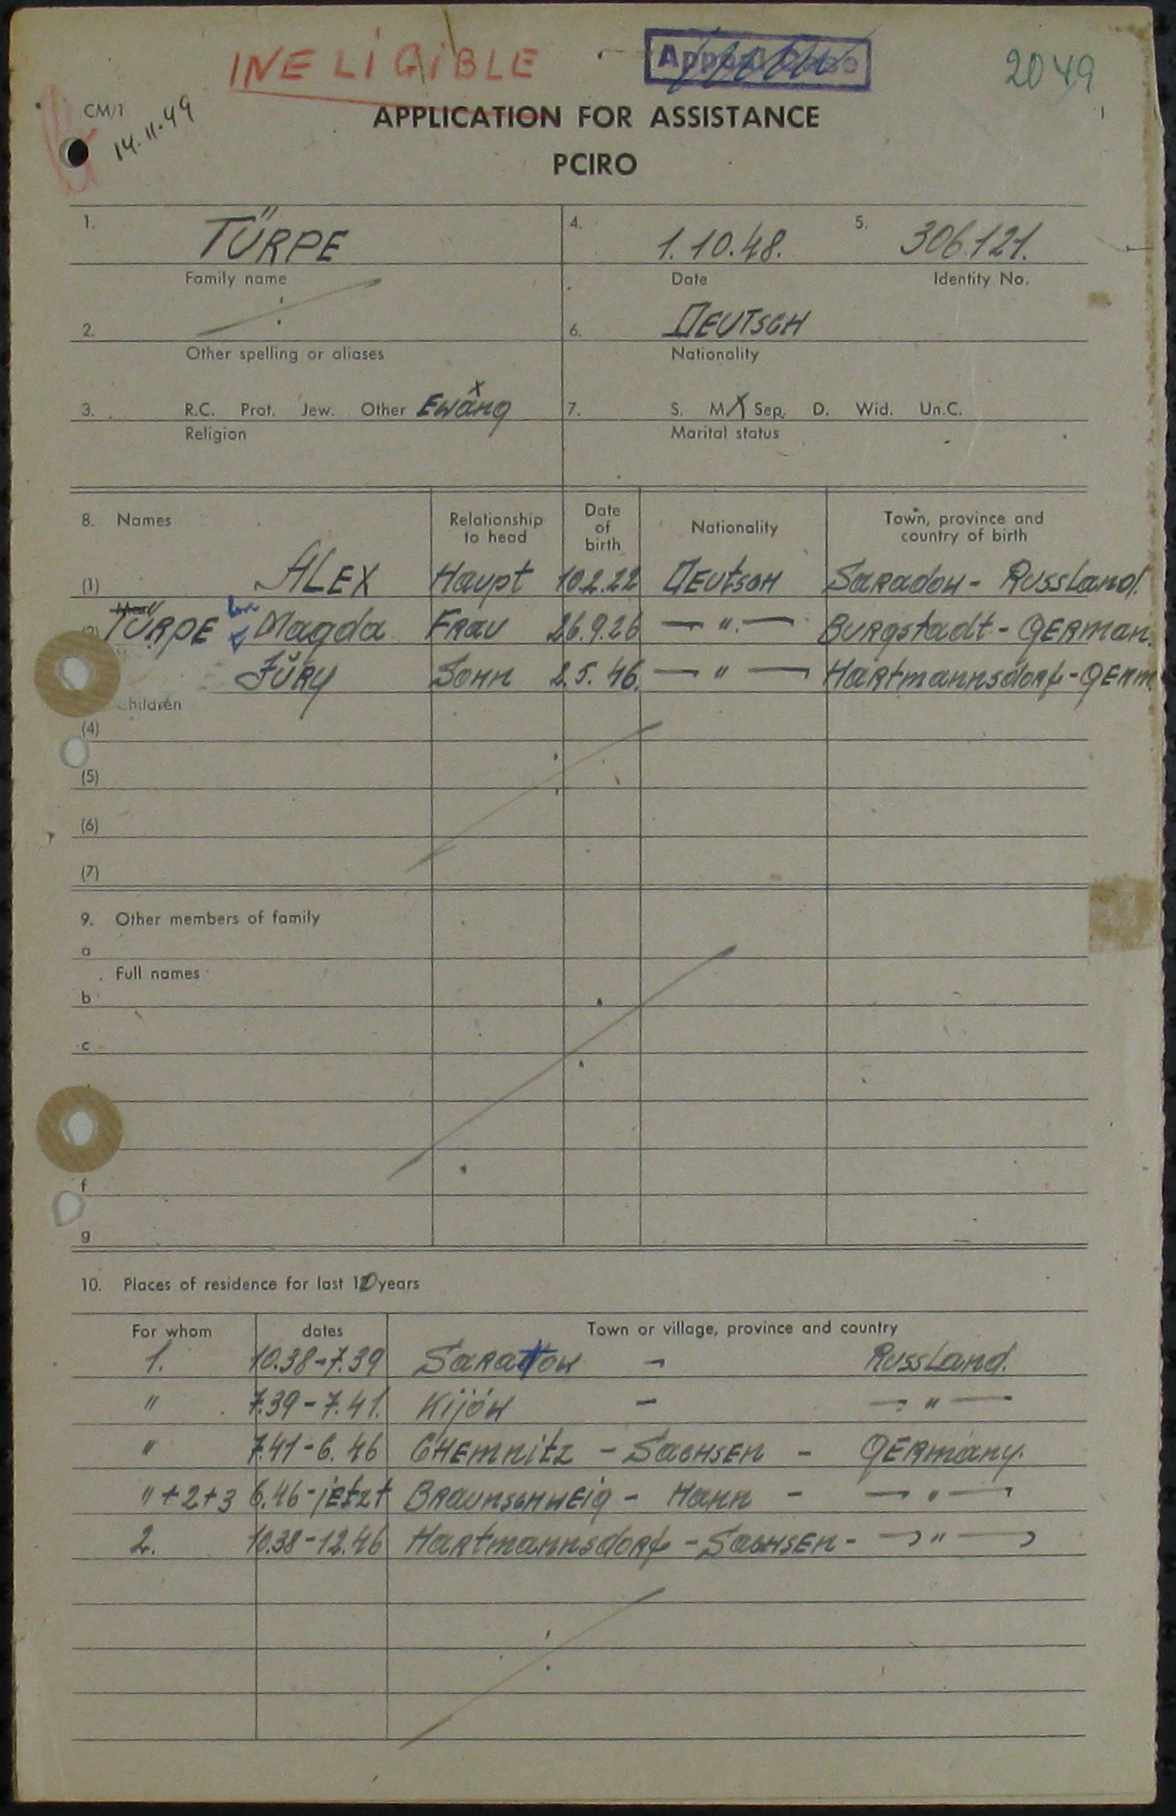 INELIGIBLE Appeal Case 2049
CM/1
14.11.49
APPLICATION FOR ASSISTANCE
PCIRO
1. TÜRPE 4. 1.10.48. 5. 306.121.
Family name Date Identity No.
2. 6. DEUTSCH
Other spelling or aliases Nationality
3. R.C. Prot. Jew. Other Ewang x 7. S. M. X Sep. D. Wid. Un.C.
Religion Marital status
8. Names Relationship to head Date of birth Nationality Town, province and country of birth
(1) ALEX Haupt 10.2.22 DEUTSCH Saradow - Russland.
(2) TÜRPE Magda Frau 26.9.26 — " — Burgstadt - German.
Jury Sohn 2.5.46. — " — Hartmannsdorf - Germ.
Children
(4)
(5)
(6)
(7)
9. Other members of family
a
Full names
b
c
f
g
10. Places of residence for last 10 years
For whom dates Town or village, province and country
1. 10.38-7.39 Saratow - Russland.
" 7.39-7.41. Kijów - — " —
" 7.41-6.46 Chemnitz - Sachsen - Germany.
" +2+3 6.46-jetzt Braunschweig - Hann - — " —
2. 10.38-12.46 Hartmannsdorf - Sachsen - — " —